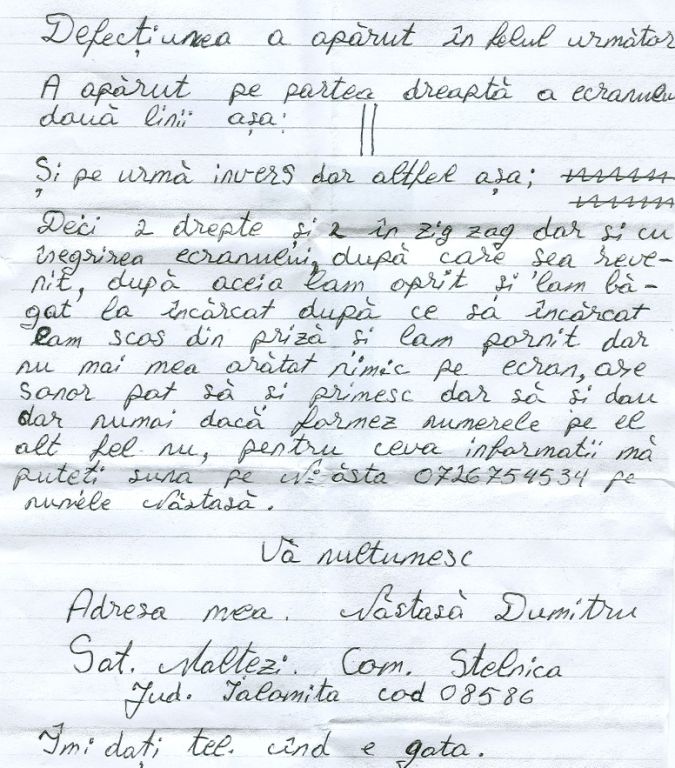 Defecțiunea a apărut în felul următor
A apărut pe partea dreaptă a ecranului
două linii așa:
Și pe urmă invers dar altfel așa;
Deci 2 drepte și 2 în zig zag dar si cu
înegrirea ecranului, după care sea reve-
nit, după aceia lam oprit si lam bă-
gat la încărcat după ce să încărcat
lam scos din priză si lam pornit dar
nu mai mea arătat nimic pe ecran, are
sonor pot să si primesc dar să si dau
dar numai dacă formez numerele pe el
alt fel nu, pentru ceva informatii mă
puteti suna pe No ăsta 0726754534 pe
numele Năstasă.
Vă multumesc
Adresa mea. Năstasă Dumitru
Sat. Maltezi. Com. Stelnica
Jud. Ialomita cod 08586
Îmi dați tel. cînd e gata.